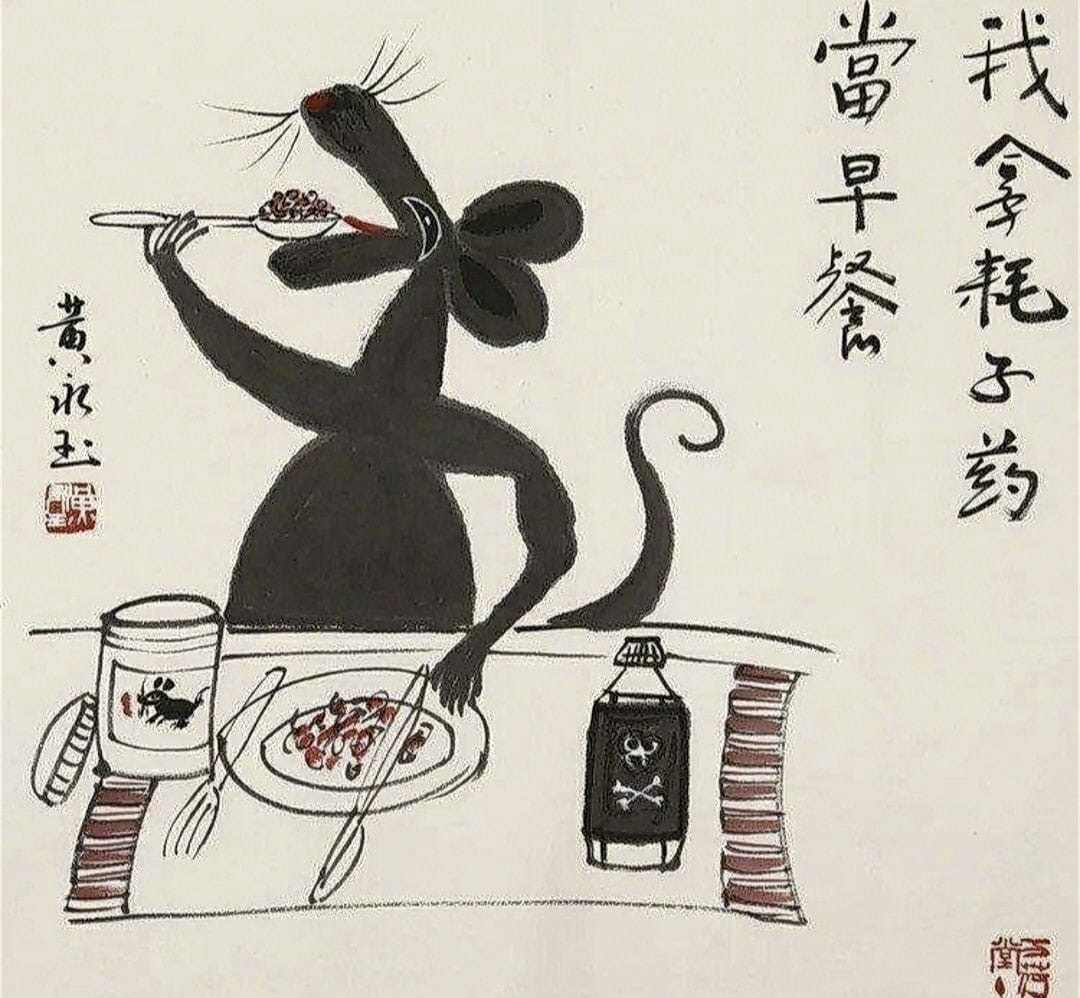 我拿耗子药
當早餐
黄永玉